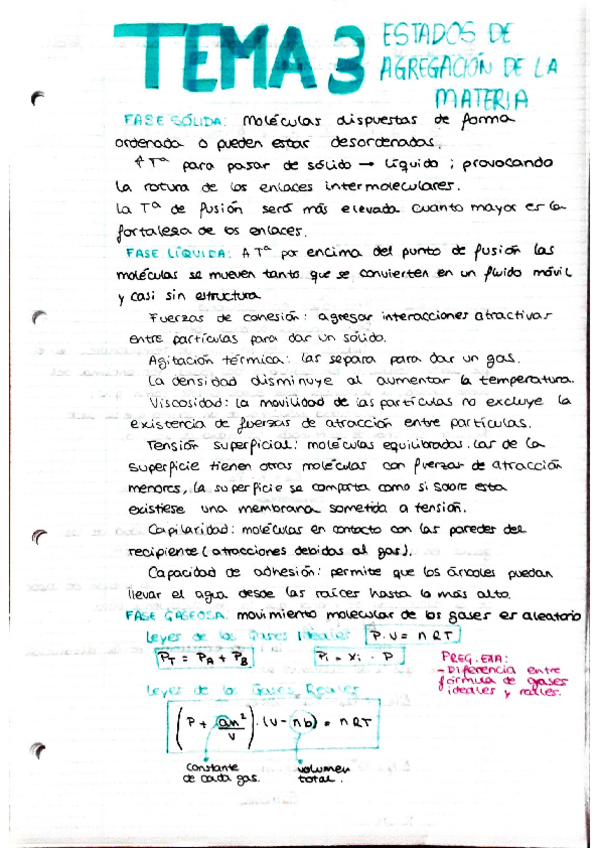 TEMA 3 ESTADOS DE
AGREGACIÓN DE LA
MATERIA
FASE SÓLIDA: moléculas dispuestas de forma
ordenada o pueden estar desordenadas.
↑Tª para pasar de sólido → líquido; provocando
la rotura de los enlaces intermoleculares.
La Tª de fusión será más elevada cuanto mayor es la
fortaleza de los enlaces.
FASE LÍQUIDA: A Tª por encima del punto de fusión las
moléculas se mueven tanto que se convierten en un fluido móvil
y casi sin estructura
Fuerzas de cohesión: agregar interacciones atractivas
entre partículas para dar un sólido.
Agitación térmica: las separa para dar un gas.
La densidad disminuye al aumentar la temperatura.
Viscosidad: la movilidad de las partículas no excluye la
existencia de fuerzas de atracción entre partículas.
Tensión superficial: moléculas equilibradas. Las de la
superficie tienen otras moléculas con fuerzas de atracción
menores, la superficie se comporta como si sobre esta
existiese una membrana sometida a tensión.
Capilaridad: moléculas en contacto con las paredes del
recipiente (atracciones debidas al gas).
Capacidad de adhesión: permite que los árboles puedan
llevar el agua desde las raíces hasta lo más alto.
FASE GASEOSA: movimiento molecular de los gases es aleatorio
Leyes de los Gases Ideales P·V = nRT
P_T = P_A + P_B Pi = Xi · P
PREG. EXA:
- Diferencia entre
fórmula de gases
ideales y reales.
Leyes de los Gases Reales
(P + an²/V) · (V - nb) = nRT
constante
de cada gas.
volumen
total.